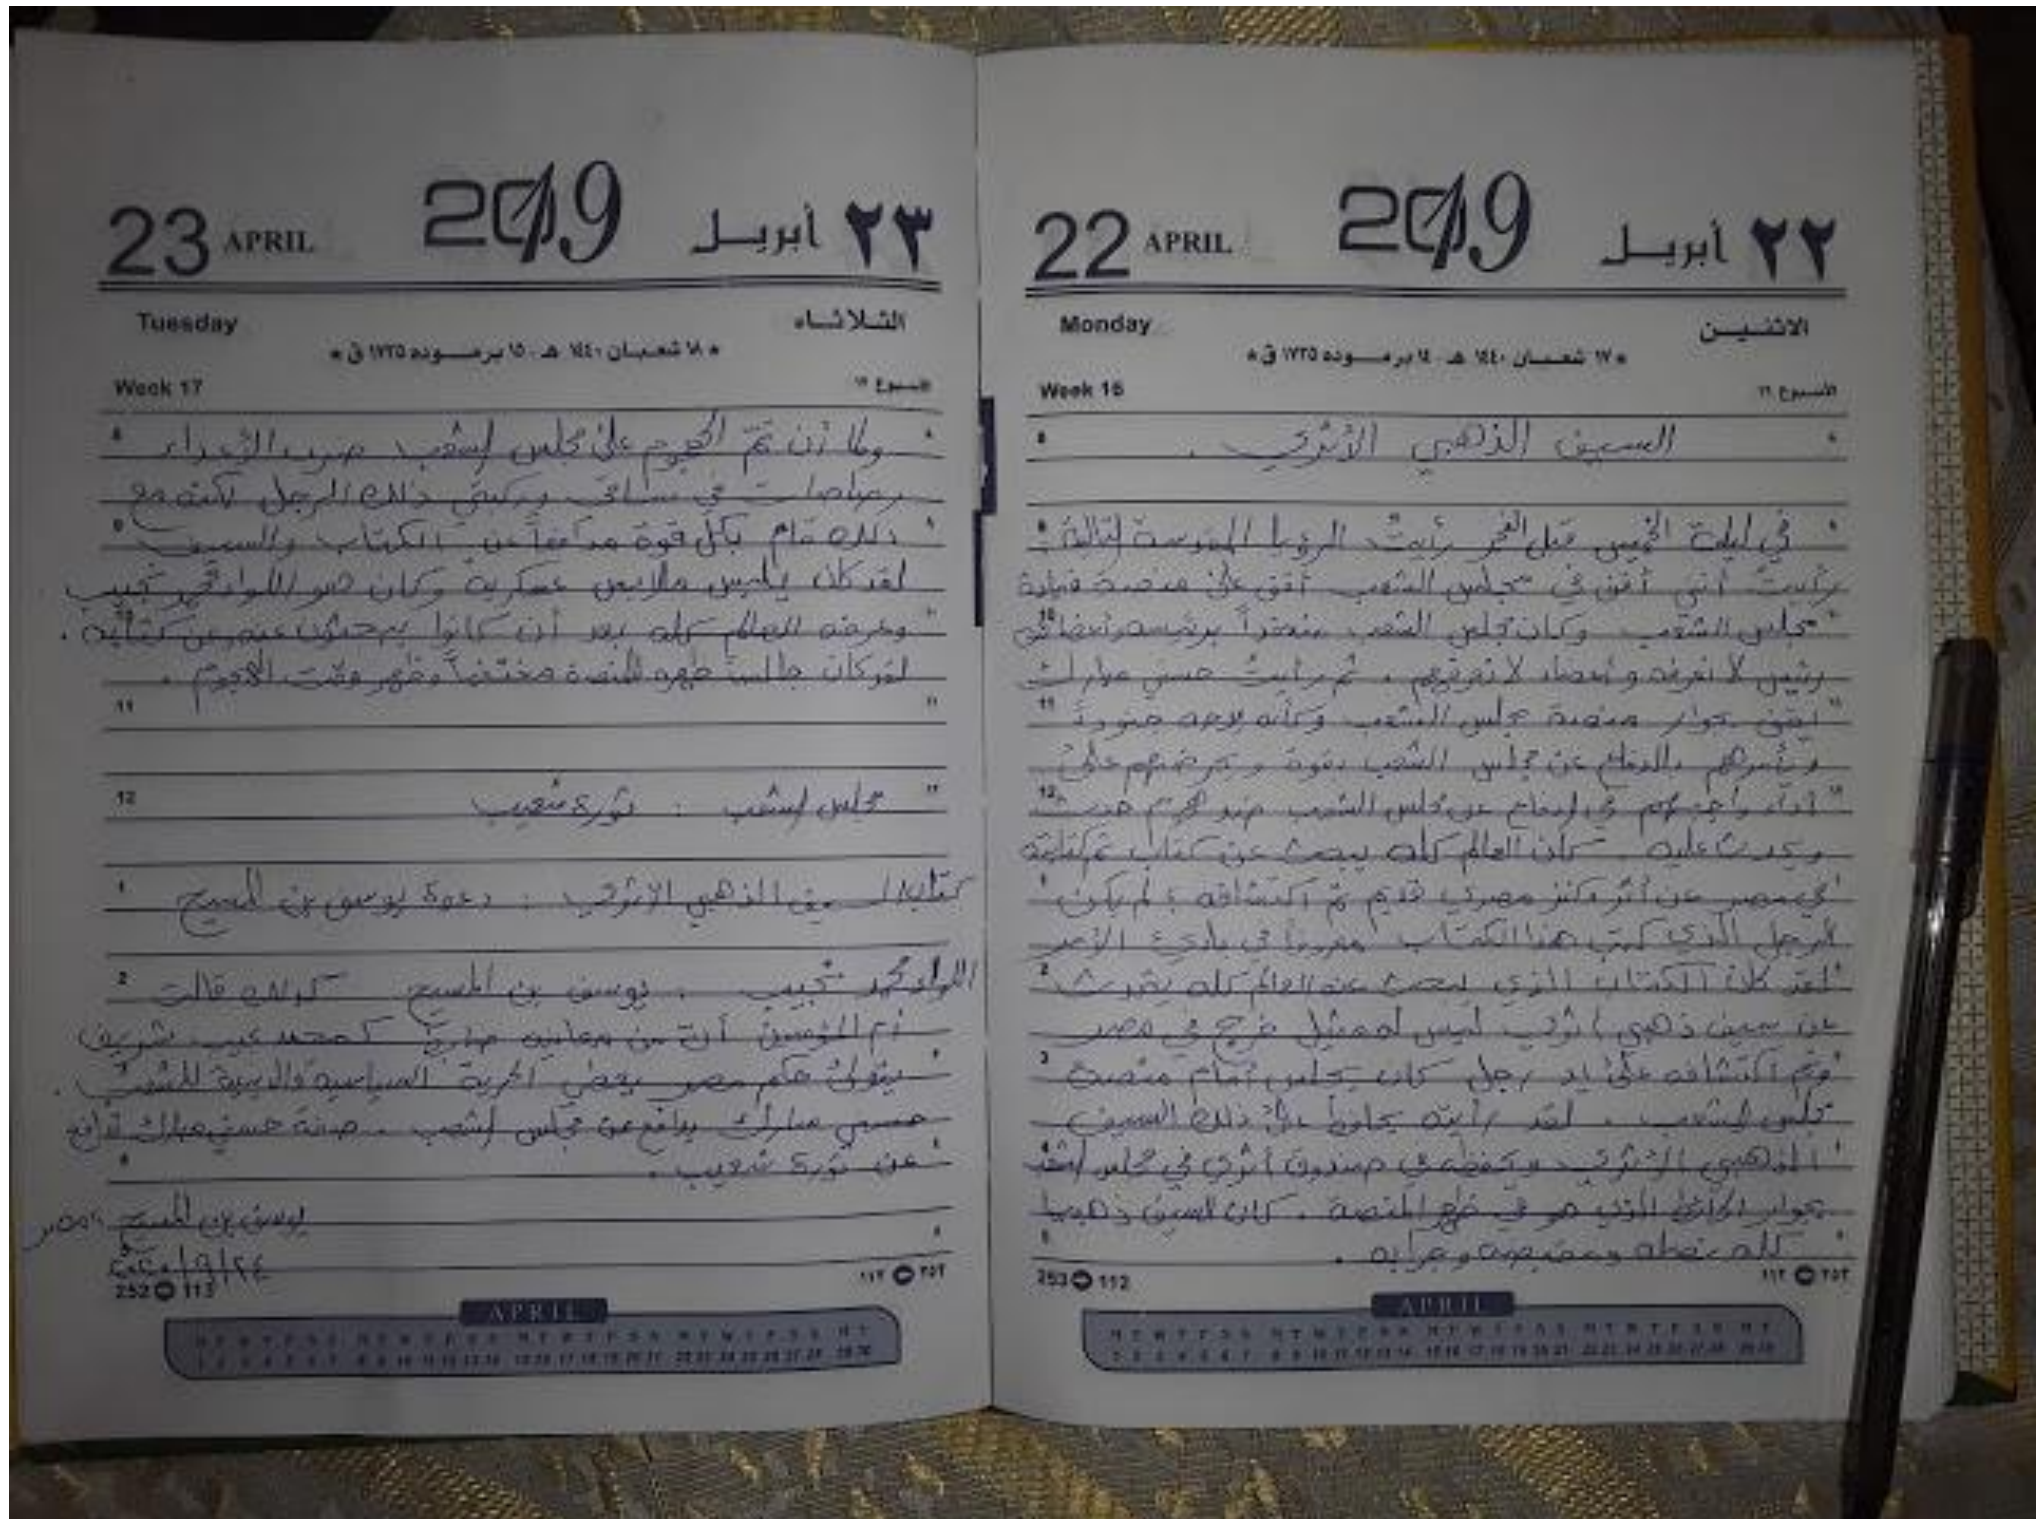 ٢٢ أبريل 2019 22 APRIL
الاثنين Monday
* ١٧ شعبان ١٤٤٠ هـ - ١٤ برموده ١٧٣٥ ق *
الأسبوع ١٦ Week 16
السيف الذهبي الأثري .
في ليلة الخميس قبل الفجر رأيت الرؤيا المقدسة التالية :
رأيت أنني أقف في مجلس الشعب أقف على منصة قيادة
مجلس الشعب وكان مجلس الشعب منعقداً برئيسه وأعضائه
رئيس لا نعرفه وأعضاء لا نعرفهم . ثم رأيت حسني مبارك
يقف بجوار منصة مجلس الشعب وكأنه يوجه جنوداً
ويأمرهم بالدفاع عن مجلس الشعب بقوة ويحرضهم على
أداء واجبهم في الدفاع عن مجلس الشعب ضد هجوم حدث
ويحدث عليه . كان العالم كله يبحث عن كتاب تم كتابته
في مصر عن أثر وكنز مصري قديم تم اكتشافه ؛ لم يكن
الرجل الذي كتب هذا الكتاب معروفاً في بادئ الأمر
لقد كان الكتاب الذي يبحث عنه العالم كله يتحدث
عن سيف ذهبي أثري ليس له مثيل خرج في مصر
وتم اكتشافه على يد رجل كان يجلس أمام منصة
مجلس الشعب . لقد رأيته يحافظ على ذلك السيف
الذهبي الأثري ويحفظه في صندوق أثري في مجلس الشعب
بجوار الحائط الذي هو في ظهر المنصة . كان السيف ذهبيا
كله نصله ومقبضه وجرابه .
253 112 ١١٢ ٢٥٣
APRIL
٢٣ أبريل 2019 23 APRIL
الثلاثاء Tuesday
* ١٨ شعبان ١٤٤٠ هـ - ١٥ برموده ١٧٣٥ ق *
Week 17
ولما أن تم الهجوم على مجلس الشعب صوب الأعداء
رصاصات في ساقي وركبتي ذلك الرجل لكنه مع
ذلك قام بكل قوة مدافعاً عن الكتاب والسيف
لقد كان يلبس ملابس عسكرية وكان هو اللواء محمد نجيب
وعرفه العالم كله بعد أن كانوا يبحثون عنه من كتابه .
لقد كان جالساً ظهره للمنصة مختفياً وظهر وقت الهجوم .
مجلس الشعب : ثورة شعيب
كتاب السيف الذهبي الأثري : دعوة يوسف بن المسيح
اللواء محمد نجيب . يوسف بن المسيح كذلك قالت
أم المؤمنين أن من معانيه كمحمد نجيب شريف
يتولى حكم مصر يعطي الحرية السياسية والدينية للشعب .
حسني مبارك يدافع عن مجلس الشعب . حسني مبارك تدافع
عن ثورة شعيب .
يوسف بن المسيح مصر
252 113 ١١٣ ٢٥٢
APRIL